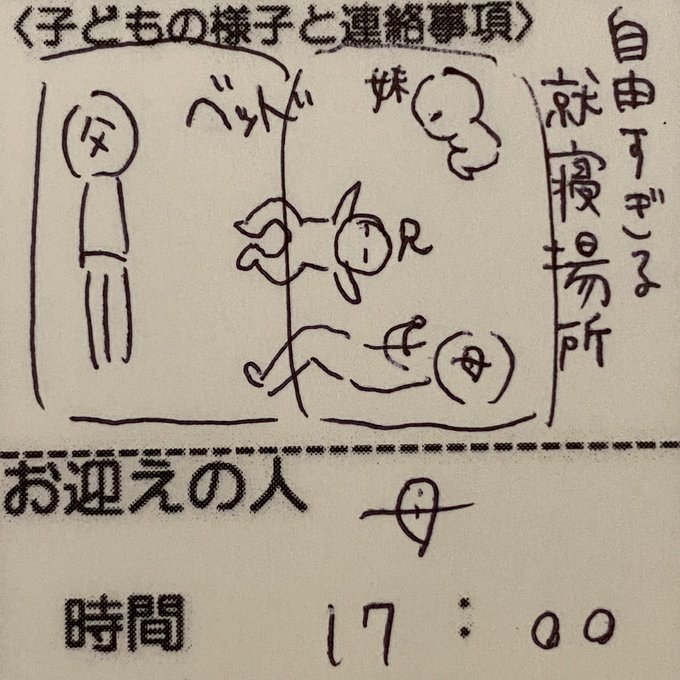 〈子どもの様子と連絡事項〉
自由すぎる
就寝場所
父
ベッド
妹
兄
母
お迎えの人
母
時間 17:00